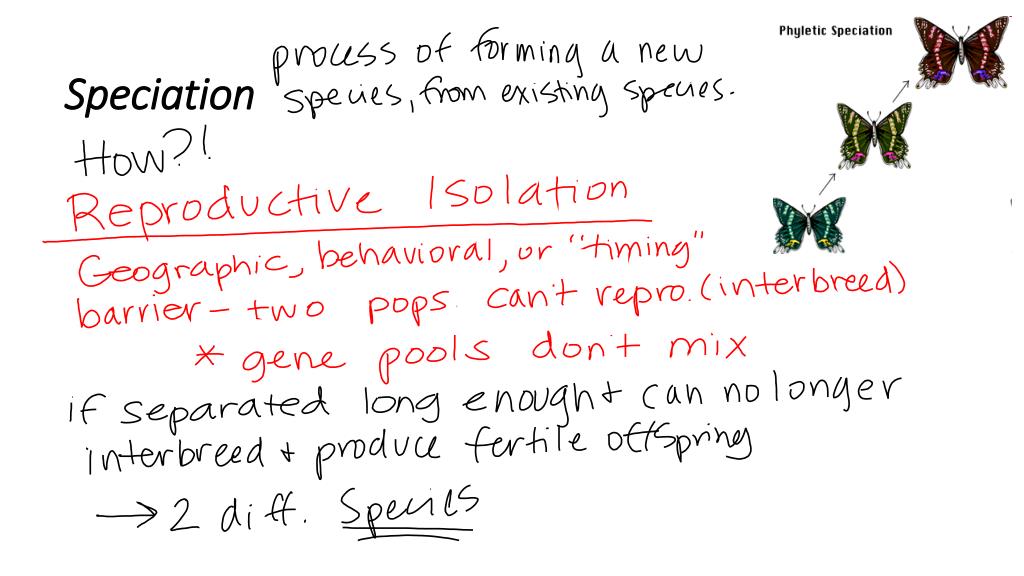 Phyletic Speciation
Speciation
process of forming a new
species, from existing species.
How?!
Reproductive Isolation
Geographic, behavioral, or "timing"
barrier - two pops. can't repro. (interbreed)
* gene pools don't mix
if separated long enough + can no longer
interbreed + produce fertile offspring
→ 2 diff. Species